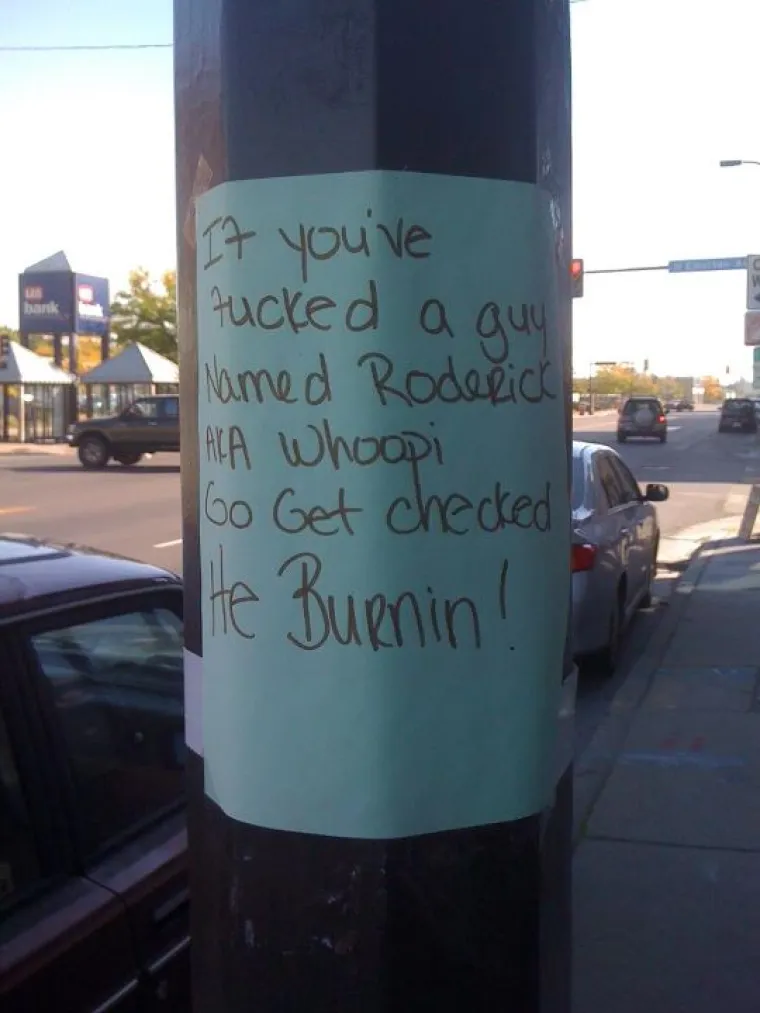 If you've
fucked a guy
Named Roderick
AKA Whoopi
Go Get checked
He Burnin!
us
bank
bank